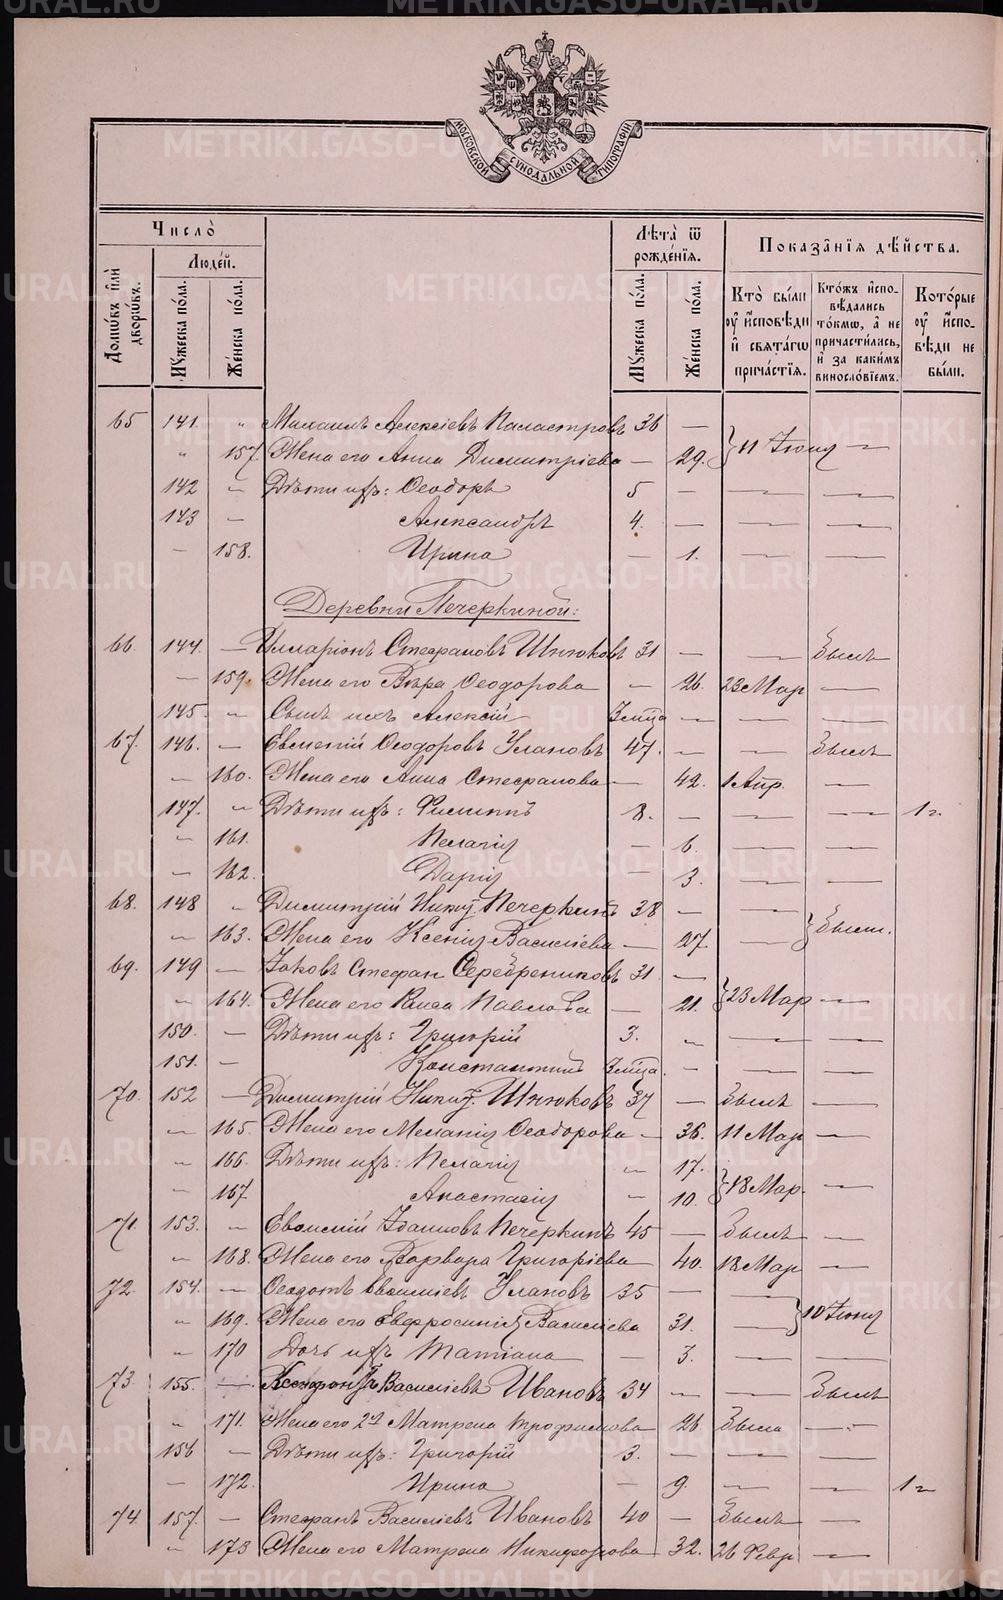 МОСКОВСКОЙ СѴНОДАЛЬНОЙ ТИПОГРАФІИ
Число̀
Домѡ́въ и҆лѝ дворѡ́въ.
Люде́й.
Мꙋ́жеска по́ла.
Же́нска по́ла.
Лѣ́та ѿ рожде́нїѧ.
Мꙋ́жеска по́ла.
Же́нска по́ла.
Показа̑нїѧ дѣ́йства.
Кто̀ бы́ли ᲂу҆ и҆сповѣ́ди и҆ свѧта́гѡ прича́стїѧ.
Кто́жъ и҆сповѣ́дались то́кмѡ, а҆ не причасти́лись, и҆ за каки́мъ винослóвїемъ.
Кото́рые ᲂу҆ и҆сповѣ́ди не бы́ли.
65 141. „ Михаилъ Алексіевъ Паластровъ 36 — } 11 Іюня —
„ 157. Жена его Анна Димитріева — 29.
142 — Дѣти ихъ: Ѳеодоръ 5 — — —
143 — Александръ 4. — — —
— 158. Ирина — 1. — —
Деревни Печеркиной:
66. 144. — Илларіонъ Стефановъ Шнюковъ 31 — — Былъ
— 159. Жена его Вѣра Ѳеодорова — 26. 23 Мар —
145. „ Сынъ ихъ Алексій — — —
67. 146. — Евменій Ѳеодоровъ Улановъ 47. — — Былъ
— 160. Жена его Анна Стефанова — 42. 1 Апр. —
147. „ Дѣти ихъ: Филиппъ 8. — — — 1 г.
„ 161. Пелагія — 6. — —
— 162. Дарія — 3. — —
68. 148 „ Димитрій Никит. Печеркинъ 38 — — } Были.
„ 163. Жена его Ксенія Василіева — 27. —
69. 149 — Іаковъ Стефан. Серебрениковъ 31 — } 23 Мар —
„ 164. Жена его Раиса Павлова — 21.
150. — Дѣти ихъ: Григорій 3. „ — —
151. — Константинъ — — —
70. 152 — Димитрій Никит. Шнюковъ 37 — Былъ —
„ 165. Жена его Меланія Ѳеодорова — 36. 11 Мар —
„ 166. Дѣти ихъ: Пелагія „ 17. } 18 Мар. —
— 167. Анастасія — 10.
71. 153. „ Евѳимій Іоанновъ Печеркинъ 45 — Былъ —
„ 168. Жена его Варвара Григоріева — 40. 18 Мар —
72. 154. — Ѳеодотъ Евѳиміевъ Улановъ 35 — — } 10 Іюня
„ 169. Жена его Евфросинія Василіева 31. —
„ 170 Дочь ихъ Татіана — 3. — —
73. 155. — Василіевъ Ивановъ 34 — — Былъ
„ 171. Жена его 2ая Матрена Трофимова 26 Была —
156 — Дѣти ихъ: Григорій 3. — — —
— 172. Ирина — 9. — — 1 г
74. 157. — Стефанъ Василіевъ Ивановъ 40 — Былъ —
„ 173 Жена его Матрена Никифорова — 32. 26 Февр —
METRIKI.GASO-URAL.RU